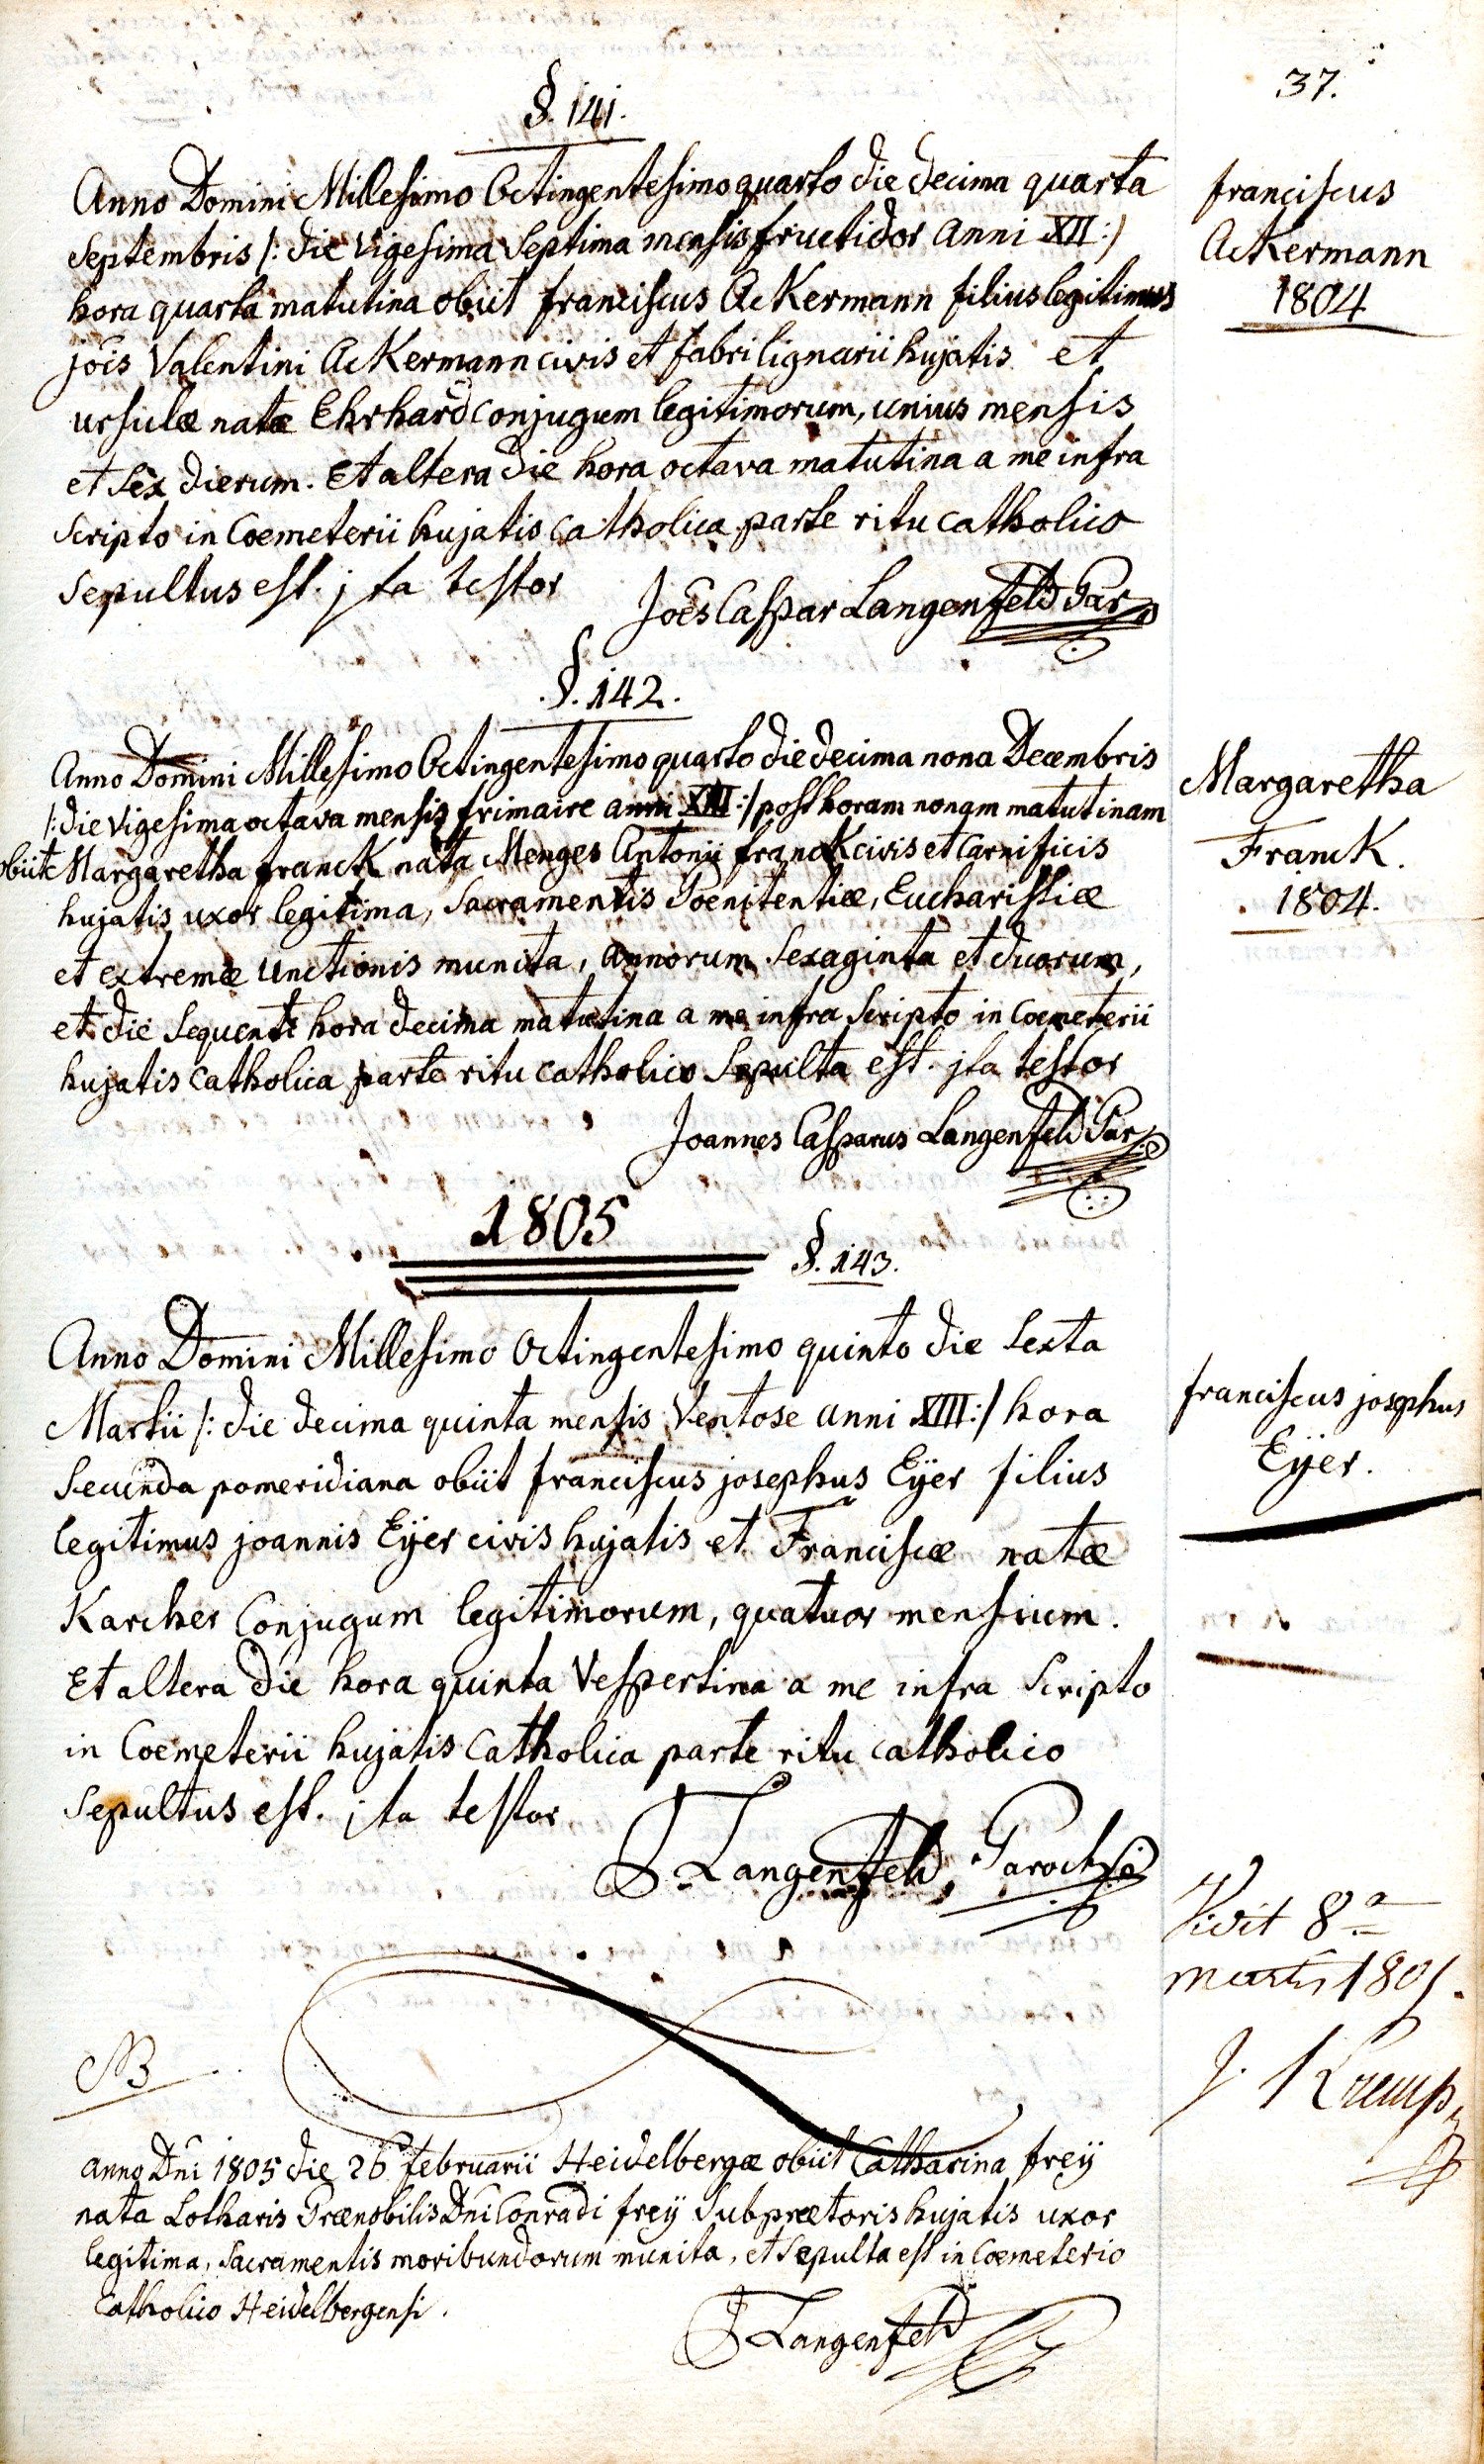 37.
§. 141.
Anno Domini Millesimo Octingentesimo quarto die decima quarta
Septembris /: die vigesima Septima mensis fructidor anni XII :/
hora quarta matutina obiit franciscus Ackermann filius legitimus
joês Valentini Ackermann civis et fabri lignarii hujatis et
ursulæ natæ Ehrhard conjugum legitimorum, unius mensis
et Sex dierum. Et altera die hora octava matutina a me infra
scripto in Coemeterii hujatis catholica parte ritu catholico
Sepultus est. jta testor
Joês Caspar Langenfeld Par
franciscus
Ackermann
1804
§. 142.
Anno Domini Millesimo Octingentesimo quarto die decima nona Decembris
/: die vigesima octava mensis frimaire anni XIII :/ post horam nonam matutinam
obiit Margaretha franck nata Menges Antonii franck civis et Carnificis
hujatis uxor legitima, Sacramentis Poenitentiæ, Eucharistiæ
et extremæ unctionis munita, annorum Sexaginta et duorum,
et die Sequenti hora decima matutina a me infra Scripto in Coemeterii
hujatis catholica parte ritu catholico Sepulta est. jta testor
Joannes Casparus Langenfeld Par
Margaretha
Franck.
1804.
1805
§. 143.
Anno Domini Millesimo Octingentesimo quinto die Sexta
Martii /: die decima quinta mensis Ventose anni XIII :/ hora
Secunda pomeridiana obiit franciscus josephus Eÿer filius
legitimus joannis Eÿer civis hujatis et Franciscæ natæ
Karcher Conjugum legitimorum, quatuor mensium.
Et altera die hora quinta Vespertina a me infra Scripto
in Coemeterii hujatis Catholica parte ritu catholico
Sepultus est. jta testor
J. Langenfeld, Paroch
franciscus josephus
Eÿer.
Vidit 8a
martii 1805.
J.
NB
anno Dni 1805 die 26 februarii Heidelbergæ obiit Catharina freÿ
nata Lotharis Prænobilis Dni Conradi freÿ Subprætoris hujatis uxor
legitima, Sacramentis moribundorum munita, et Sepulta est in Coemeterio
Catholico Heidelbergensi.
J Langenfeld